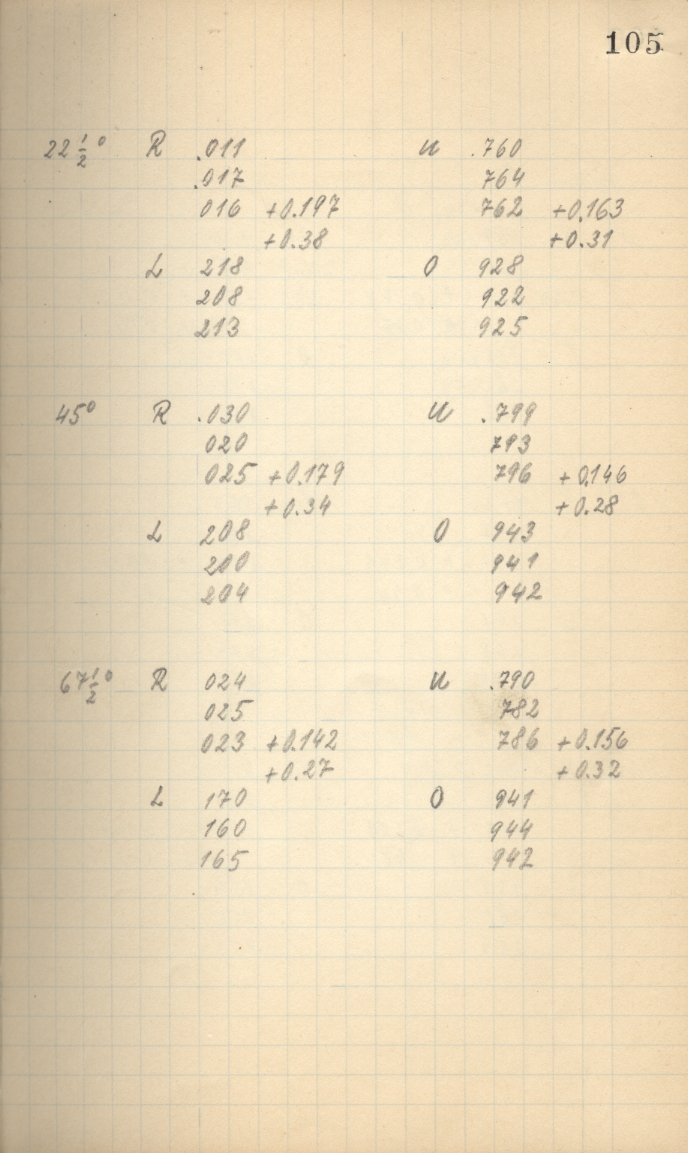 105
22 1/2° R .011 u .760
.017 764
016 +0.197 762 +0.163
+0.38 +0.31
L 218 O 928
208 922
213 925
45° R .030 u .799
020 793
025 +0.179 796 +0.146
+0.34 +0.28
L 208 O 943
200 941
204 942
67 1/2° R 024 u .790
025 782
023 +0.142 786 +0.156
+0.27 +0.32
L 170 O 941
160 944
165 942